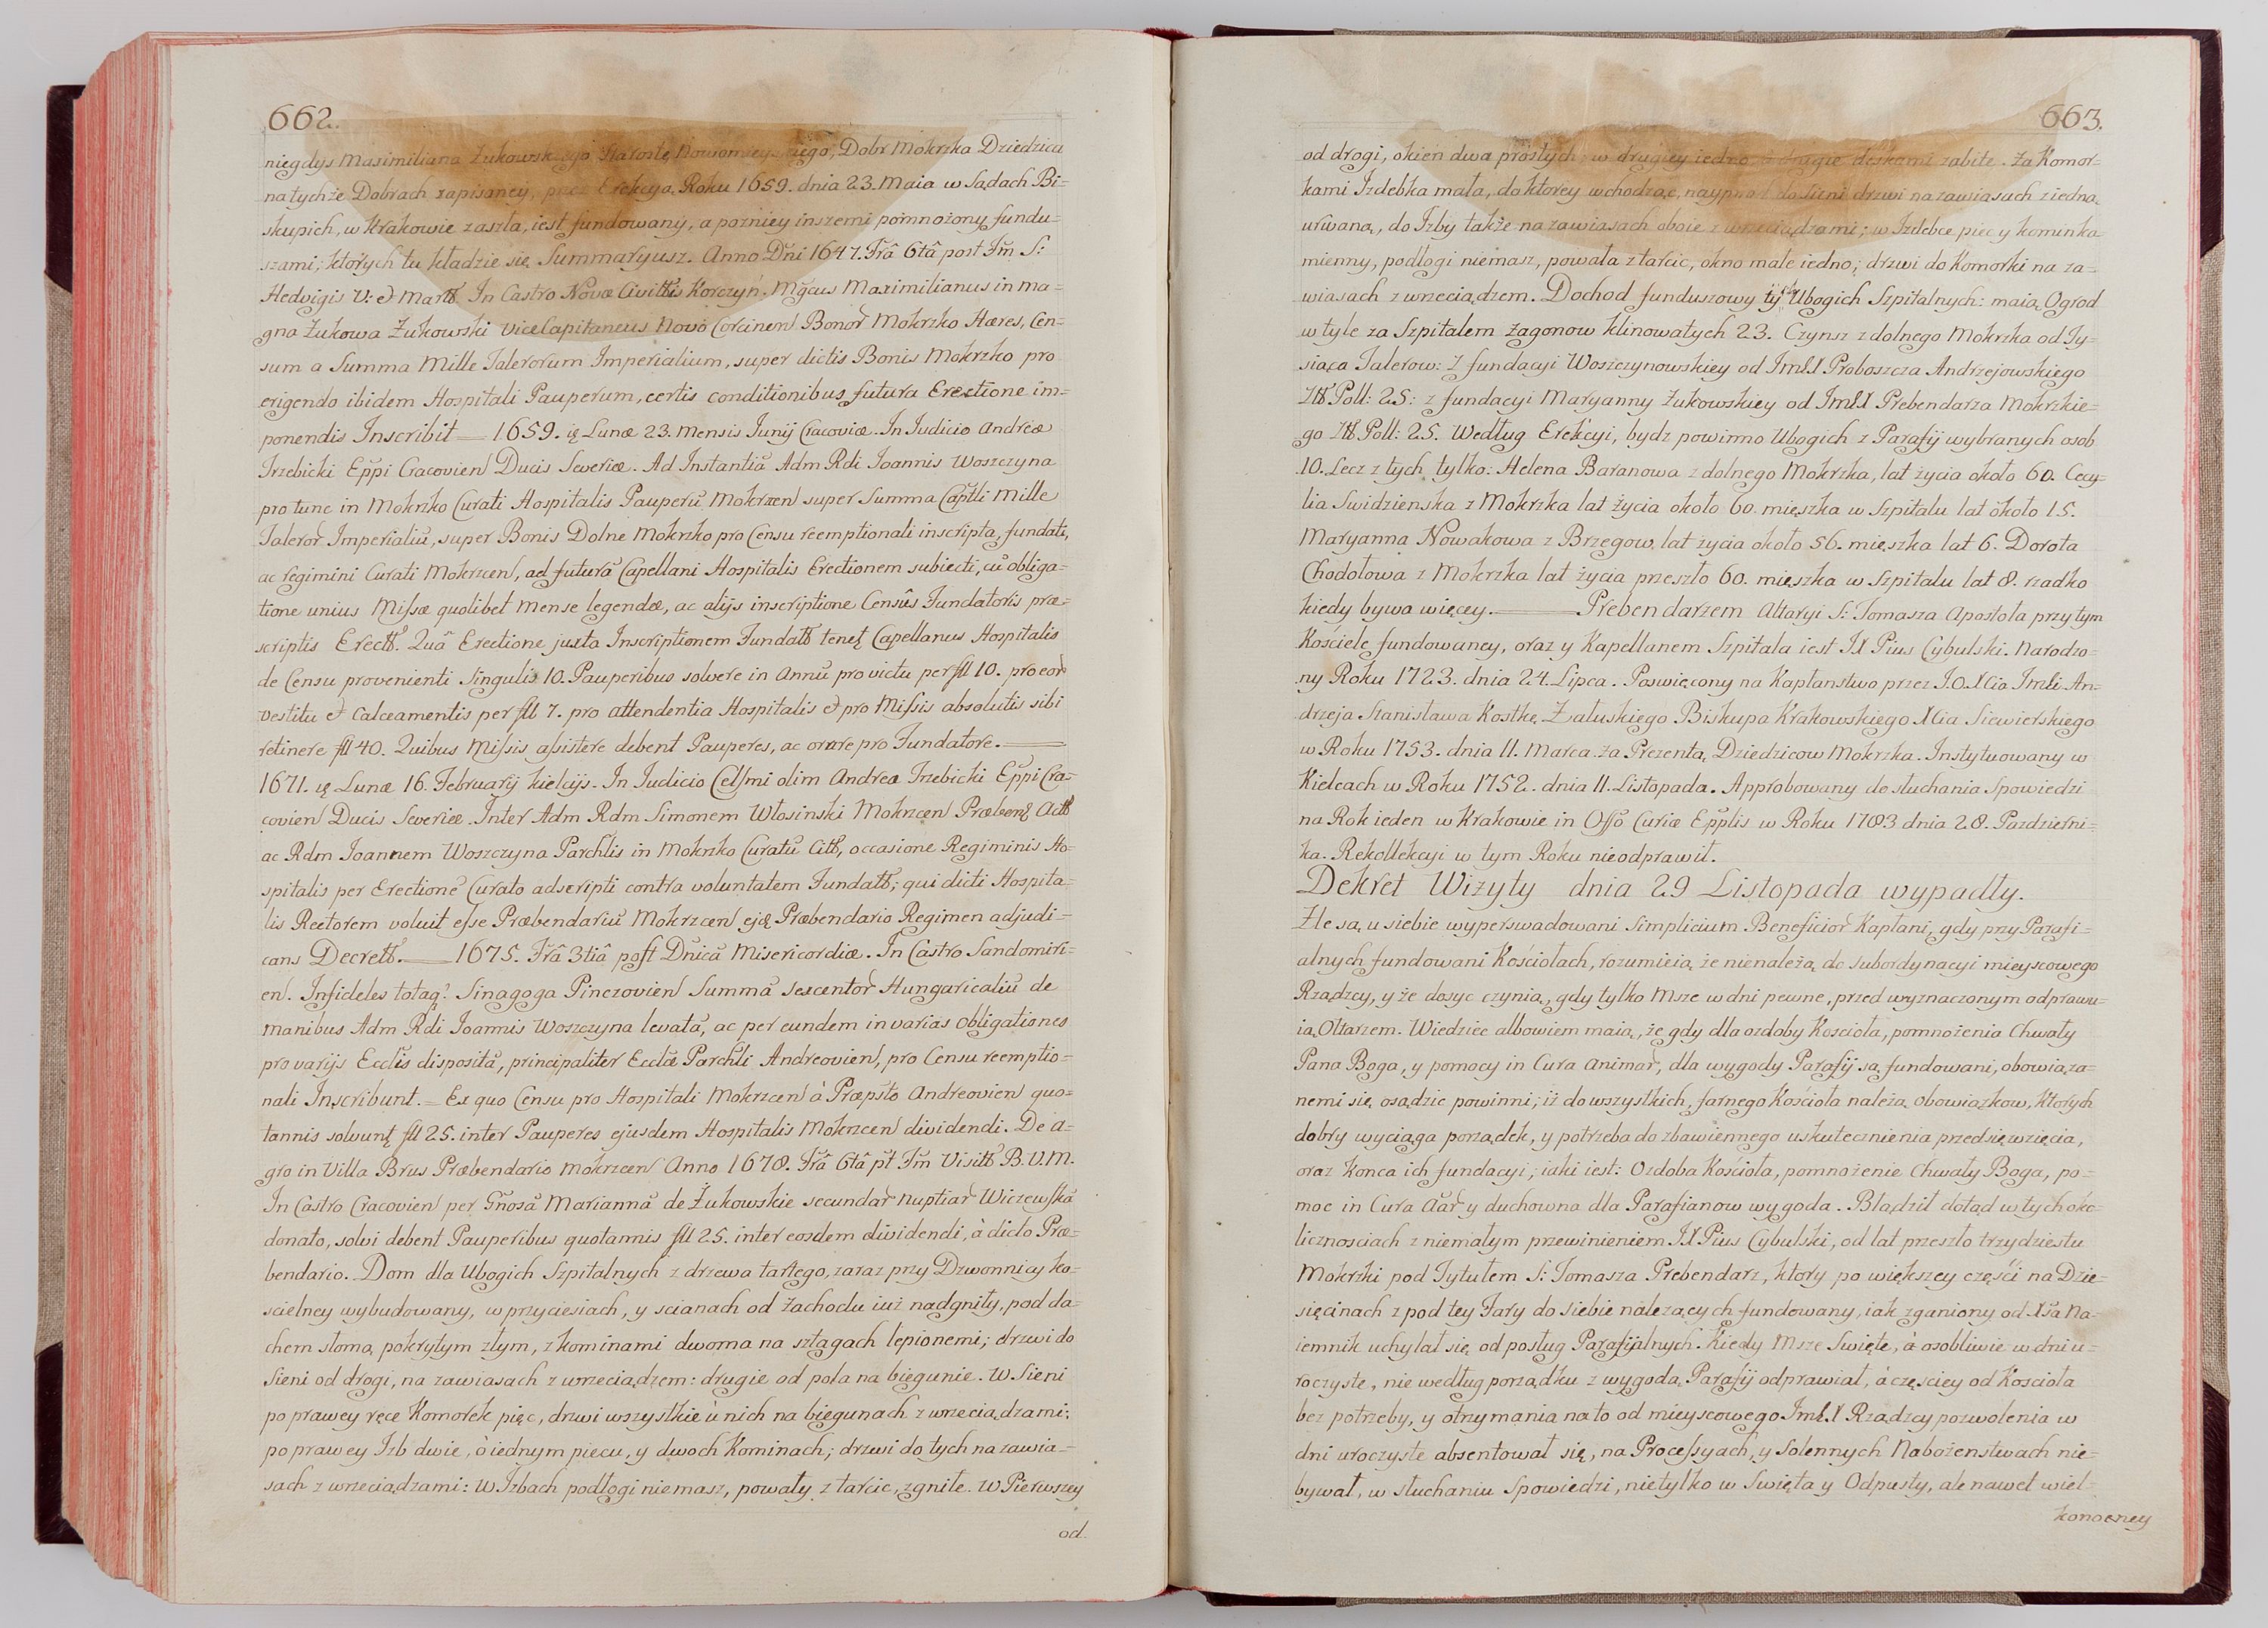 662.
niegdys Maximiliana Żukowskiego Starostę Nowomieyskiego, Dobr Mokrzka Dziedzica
na tychże Dobrach zapisaney, przez Erekcyą Roku 1659. dnia 23. Maia w Sądach Bi=
skupich, w Krakowie zaszła, iest fundowany, a pozniey inszemi pomnożony fundu=
szami; ktorych tu kładzie się Summaryusz. Anno Dñi 1647. Frâ 6tâ post Fm S:
Hedvigis V: et Martt. In Castro Novæ Civittis Korczyń. Mgcus Maximilianus in ma=
gna Żukowa Żukowski ViceCapitaneus Novo Corcinen Bonor Mokrzko Hæres, Cen=
sum a Summa Mille Talerorum Imperialium, super dictis Bonis Mokrzko pro
erigendo ibidem Hospitali Pauperum, certis conditionibus futura Erectione im=
ponendis Inscribit — 1659. ię Lunæ 23. Mensis Junij Cracoviæ. In Iudicio Andreæ
Trzebicki Eppi Cracovien Ducis Severiæ. Ad Instantiã Adm Rdi Ioannis Woszczyna
pro tunc in Mokrzko Curati Hospitalis Pauperũ Mokrzcen super Summa Captli Mille
Taleror Imperialiũ, super Bonis Dolne Mokrzko pro Censu reemptionali inscripta, fundati,
ac regimini Curati Mokrzcen, ad futurã Capellani Hospitalis Erectionem subiecti, cũ obliga=
tione unius Missæ quolibet Mense legendæ, ac alijs inscriptione Censûs Fundatoris præ=
scriptis Erectt. Quâ Erectione juxta Inscriptionem Fundatt tenet Capellanus Hospitalis
de Censu provenienti Singulis 10. Pauperibus solvere in Annũ pro victu per fll 10. pro eor
vestitu et Calceamentis per fll 7. pro attendentia Hospitalis et pro Missis absolutis sibi
retinere fll 40. Quibus Missis assistere debent Pauperes, ac orare pro Fundatore. —
1671. ię Lunæ 16. Februarij Kielcijs. In Iudicio Celsmi olim Andreæ Trzebicki Eppi Cra=
covien Ducis Severiæ. Inter Adm Rdm Simonem Włosinski Mokrzcen Præbend Actt
ac Rdm Ioannem Woszczyna Parchlis in Mokrzko Curatũ Citt, occasione Regiminis Ho=
spitalis per Erectionẽ Curato adscripti contra voluntatem Fundatt; qui dicti Hospita=
lis Rectorem voluit esse Præbendariũ Mokrzcen ejq Præbendario Regimen adjudi=
cans Decrett. — 1675. Frâ 3tiâ post Dñicã Misericordiæ. In Castro Sandomiri=
en. Infideles totaq? Sinagoga Pinczovien Summã sexcentor Hungaricaliũ de
manibus Adm Rdi Ioannis Woszczyna levatã, ac per eundem in varias obligationes
pro varijs Ecclis dispositã, principaliter Ecclæ Parchli Andreovien, pro Censu reemptio=
nali Inscribunt. = Ex quo Censu pro Hospitali Mokrzcen à Præpsto Andreovien quo=
tannis solvunt fll 25. inter Pauperes ejusdem Hospitalis Mokrzcen dividendi. De a=
gro in Villa Brus Præbendario Mokrzcen Anno 1678. Frâ 6tâ pt Fm Visitt B.V.M.
In Castro Cracovien per Gñosã Mariannã de Żukowskie secundar nuptiar Wiczewską
donato, solvi debent Pauperibus quotannis fll 25. inter eosdem dividendi, à dicto Præ=
bendario. Dom dla Ubogich Szpitalnych z drzewa tartego, zaraz przy Dzwonnicy Ko=
scielney wybudowany, w przyciesiach, y scianach od Zachodu iuż nadgniły, pod da=
chem słomą pokrytym złym, z kominami dwoma na sztagach lepionemi; drzwi do
Sieni od drogi, na zawiasach z wrzeciądzem: drugie od pola na biegunie. W Sieni
po prawey ręce Komorek pięc, drzwi wszystkie ù nich na biegunach z wrzeciądzami:
po prawey Izb dwie, ò iednym piecu, y dwoch Kominach; drzwi do tych na zawia=
sach z wrzeciądzami: W Izbach podłogi niemasz, powały z tarcic, zgniłe. W Pierwszey
od
663.
od drogi, okien dwa prostych, w drugiey iedno, a drugie deskami zabite. Za Komor=
kami Izdebka mała, do ktorey wchodząc, naypr do Sieni drzwi na zawiasach z iedną
urwaną, do Izby także na zawiasach oboie z wrzeciądzami; w Izdebce piec y kominka
mienny, podłogi niemasz, powała z tarcic, okno małe iedno; drzwi do Komorki na za=
wiasach z wrzeciądzem. Dochod funduszowy tych Ubogich Szpitalnych: maią Ogrod
w tyle za Szpitalem zagonow klinowatych 23. Czynsz z dolnego Mokrzka od Ty=
siąca Talerow: Z fundacyi Woszczynowskiey od ImćX Proboszcza Andrzejowskiego
Złt Poll: 25: z fundacyi Maryanny Żukowskiey od ImćX Prebendarza Mokrzkie=
go Złt Poll: 25. Według Erekcyi, bydz powinno Ubogich z Parafij wybranych osob
10. Lecz z tych tylko: Helena Baranowa z dolnego Mokrzka, lat życia około 60. Cecy=
lia Swidzienska z Mokrzka lat życia około 60. mięszka w Szpitalu lat około 15.
Maryanna Nowakowa z Brzegow, lat życia około 56. mięszka lat 6. Dorota
Chodołowa z Mokrzka lat życia przeszło 60. mięszka w Szpitalu lat 8. rzadko
kiedy bywa więcey. — Prebendarzem Altaryi S: Tomasza Apostoła przy tym
Kościele fundowaney, oraz y Kapellanem Szpitala iest JX Pius Cybulski. Narodzo=
ny Roku 1723. dnia 24. Lipca. Poswięcony na Kapłanstwo przez J.O.Xcia Imći An=
drzeja Stanisława Kostkę Załuskiego Biskupa Krakowskiego Xcia Siewierskiego
w Roku 1753. dnia 11. Marca. Za Prezentą Dziedzicow Mokrzka. Instytuowany w
Kielcach w Roku 1752. dnia 11. Listopada. Approbowany do słuchania Spowiedzi
na Rok ieden w Krakowie in Offo Curiæ Epplis w Roku 1783 dnia 28. Pazdzierni=
ka. Rekollekcyi w tym Roku nieodprawił.
Dekret Wizyty dnia 29 Listopada wypadły.
Zle są u siebie wyperswadowani Simplicium Beneficior Kapłani, gdy przy Parafi=
alnych fundowani Kościołach, rozumieią że nienależą do subordynacyi mieyscowego
Rządzcy, y że dosyc czynią, gdy tylko Msze w dni pewne, przed wyznaczonym odprawu=
ią Ołtarzem. Wiedziec albowiem maią, że gdy dla ozdoby Kościoła, pomnożenia Chwały
Pana Boga, y pomocy in Cura Animar, dla wygody Parafij są fundowani, obowiąza=
nemi się osądzic powinni; iż do wszystkich, farnego Kościoła należą obowiązkow, ktorych
dobry wyciąga porządek, y potrzeba do zbawiennego uskutecznienia przedsięwzięcia,
oraz konca ich fundacyi; iaki iest: Ozdoba Kościoła, pomnożenie Chwały Boga, po=
moc in Cura Aar y duchowna dla Parafianow wygoda. Błądził dotąd w tych oko=
licznosciach z niemałym przewinieniem JX Pius Cybulski, od lat przeszło trzydziestu
Mokrzki pod Tytułem S: Tomasza Prebendarz, ktory po większey części na Dzie=
sięcinach z pod tey Fary do siebie należących fundowany, iak zganiony od Xsa Na=
iemnik uchylał się od posług Parafijalnych. Kiedy Msze Swięte, à osobliwie w dni u=
roczyste, nie według porządku z wygodą Parafij odprawiał, à częściey od Kościoła
bez potrzeby, y otrzymania na to od mieyscowego ImćX Rządzcy pozwolenia w
dni uroczyste absentował się, na Processyach, y Solennych Nabożenstwach nie=
bywał, w słuchaniu Spowiedzi, nietylko w Swięta y Odpusty, ale nawet wiel=
konocney